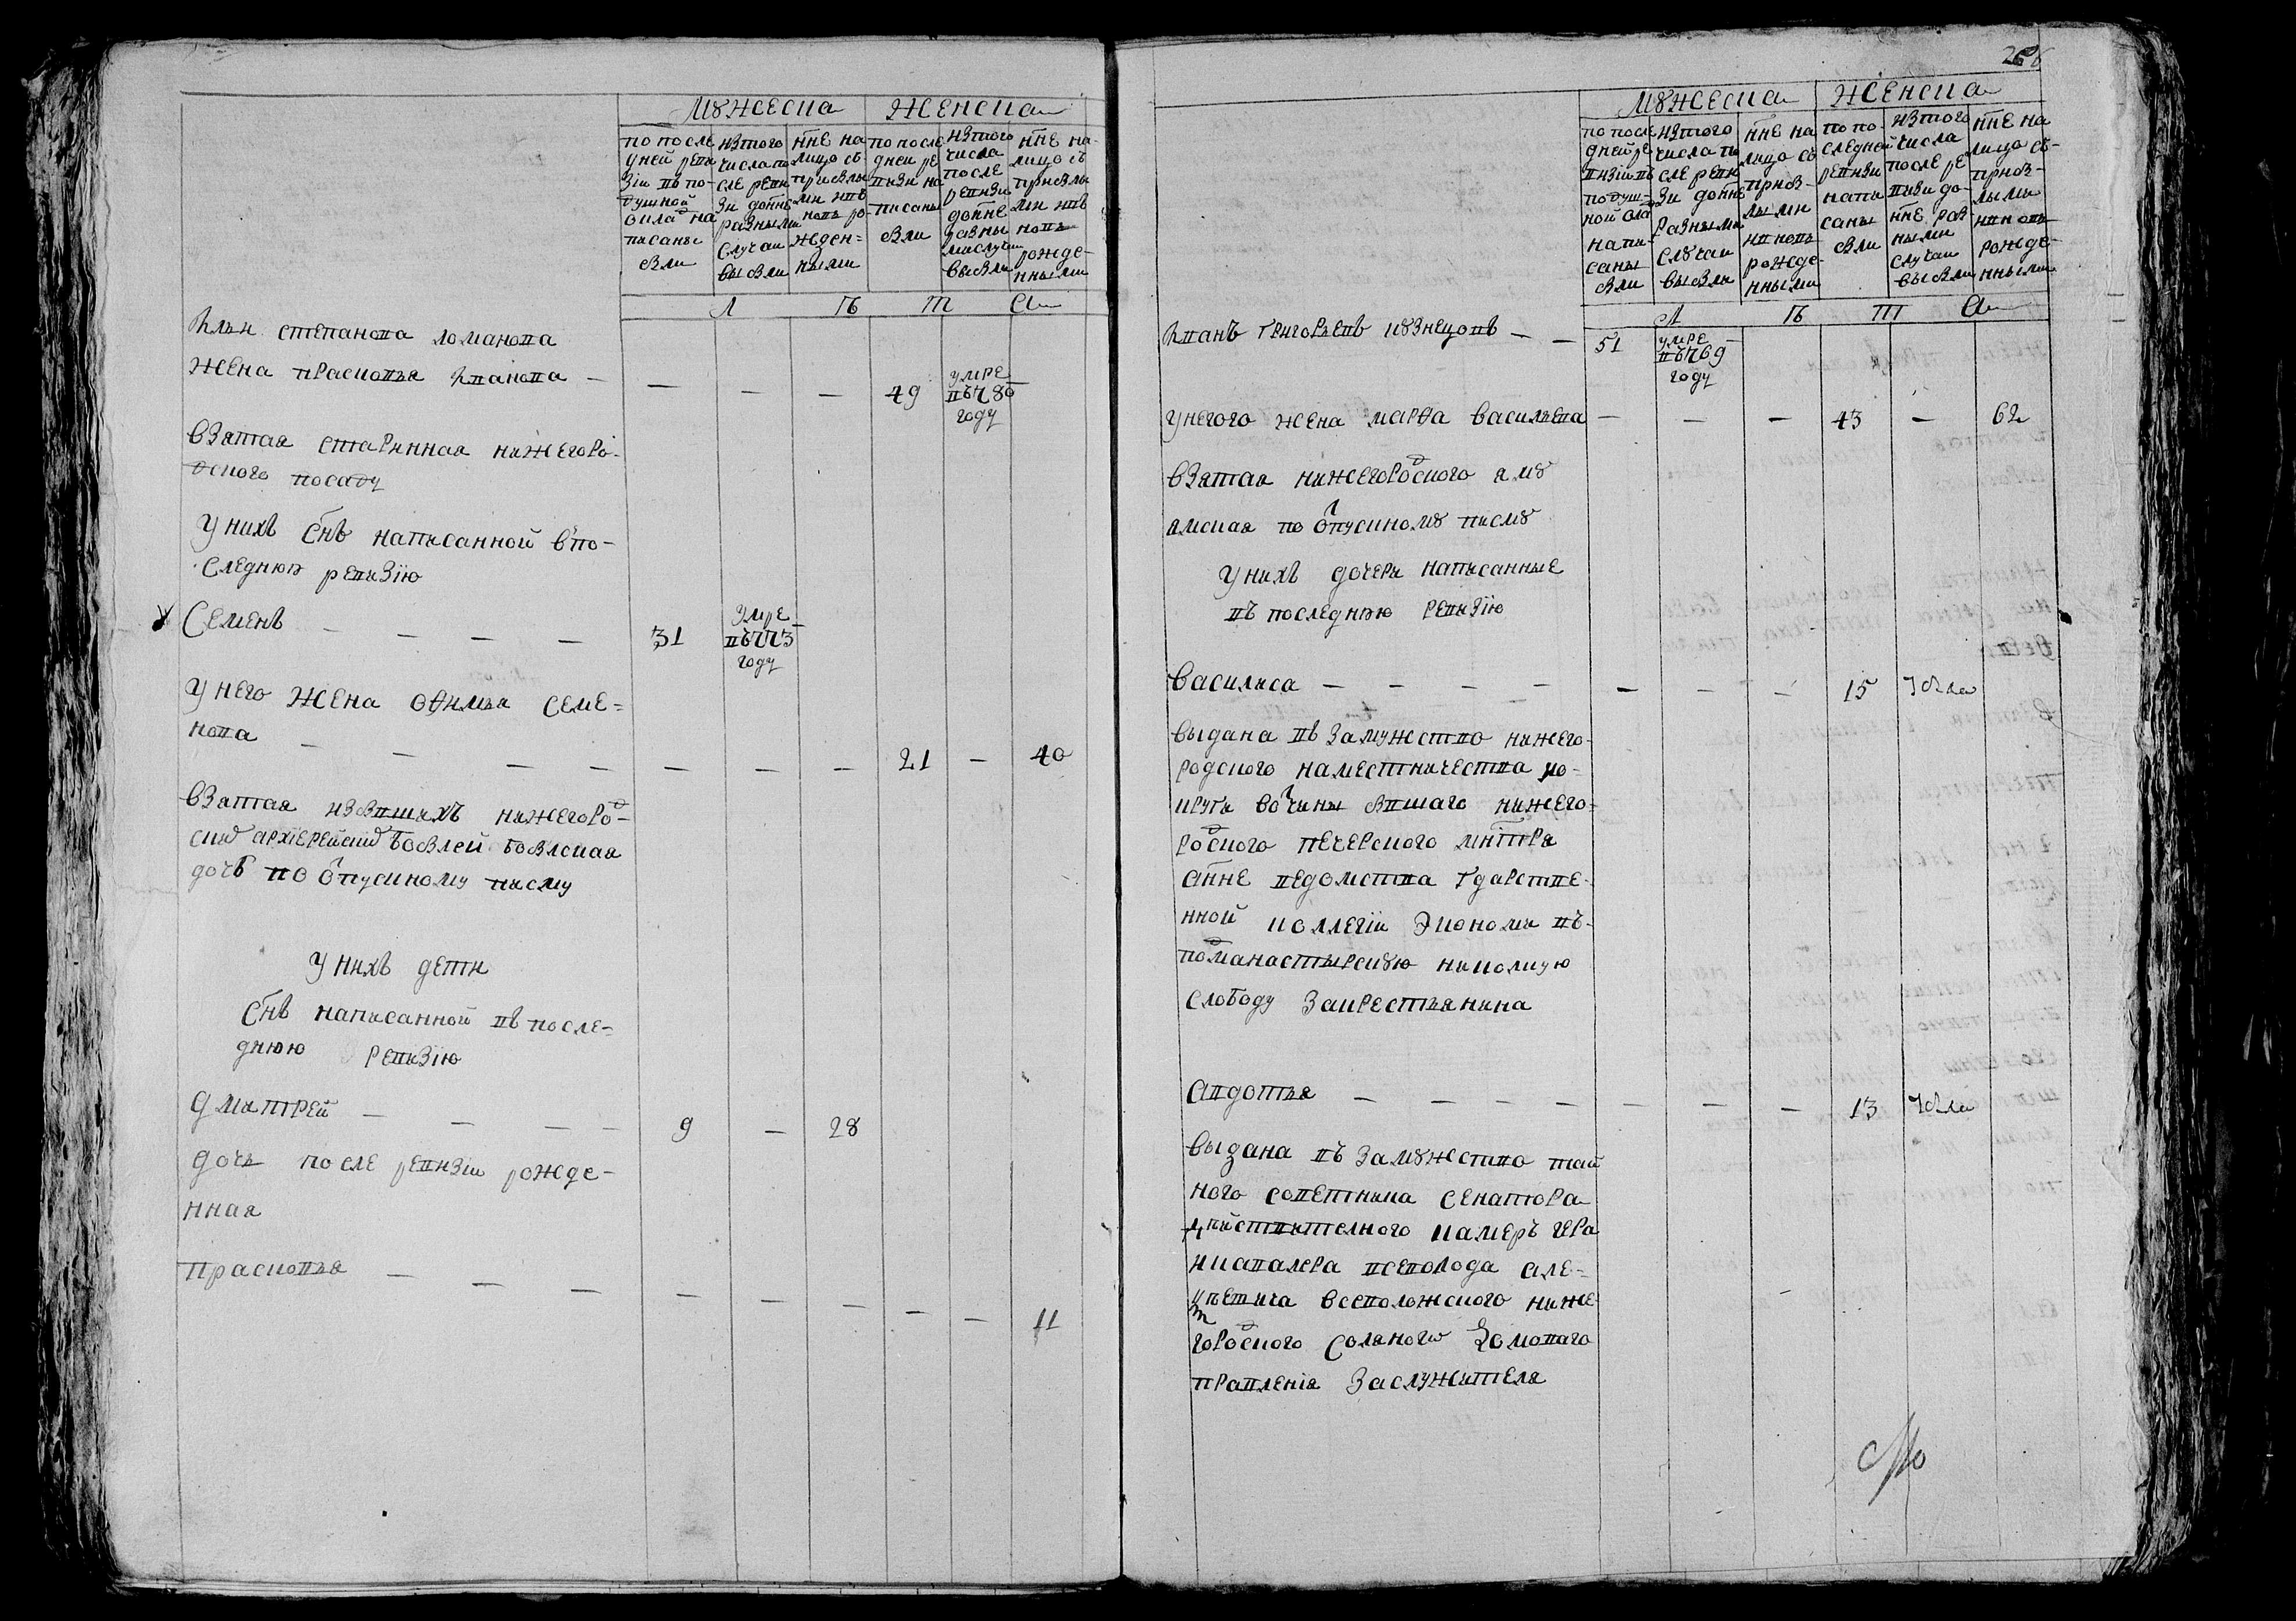 мужеска женска
по после
дней реви
зіи въ по-
душной
окладъ на
писаны
были
изтого
числа по
сле реви
зи доннѣ
разными
случаи
выбыли
ннѣ на
лицо съ
прибылы
ми инъ
новь ро-
жден=
ными
по после
дней ре
визи на
писаны
были
изтого
числа
после
ревизи
доннѣ
разны
ми случаи
выбыли
ннѣ на-
лицо съ
прибылы
ми инъ
новь
рожде-
нными
Л Ѣ Т А
Ильи степанова ломанова
жена прасковья Иванова — — — — 49 умре въ 780 году
взятая старинная нижегоро-
дского посаду
у нихъ снъ написанной впо-
следнюю ревизію
Семенъ — — — — 31 умре въ 773 году
у него жена офимья семе=
нова — — — — — — — 21 — 40
взятая избывшихъ нижегород-
ских архіерейских бобылей бобылская
дочь по отпускному писму
у нихъ дети
снъ написанной въ после-
днюю ревизію
дмитрей — — — — 9 — 28
дочь после ревизіи рожде-
нная
прасковья — — — — — — — — 11
266
мужеска женска
по после
дней ре
визіи въ
подуш-
ной окла
напи-
саны
были
изтого
числа по
сле реви
зи доннѣ
разными
случаи
выбыли
ннѣ на
лицо съ
приб-
лыми
и новь
рожде-
нными
по по-
следней
ревизи
напи
саны
были
изтого
числа
после ре
визи до-
ннѣ раз
ными
случаи
выбыли
ннѣ на
лицо съ-
приб-
лыми
и новь
рожде-
нными
Л Ѣ Т А
Иванъ григорьевъ кузнецовъ — — 51 умре въ 769 году
у него жена марфа васильева — — — 43 — 62
взятая нижегородского яму
ямская по отпускному писму
у нихъ дочери написанные
въ последнюю ревизію
василиса — — — — — — — 15
выдана въ замужство нижего-
родского наместничества ко-
круги вотчины бывшаго нижего-
родского печерского мнтря
а ннѣ ведомства гдарстве-
нной коллегіи экономи въ
подманастырскую никольскую
слободу за крестьянина
авдотья — — — — — — — 13
выдана въ замужство тай
ного советника сенатора
действителного камеръ гера
и кавалера всеволода але-
ксеевича всеволожского ниже
городского солянога
правленія за служителя